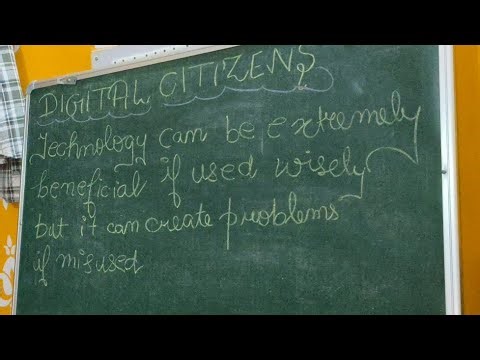 DIGITAL CITIZENS
Technology can be extremely
beneficial if used wisely
but it can create problems
if misused